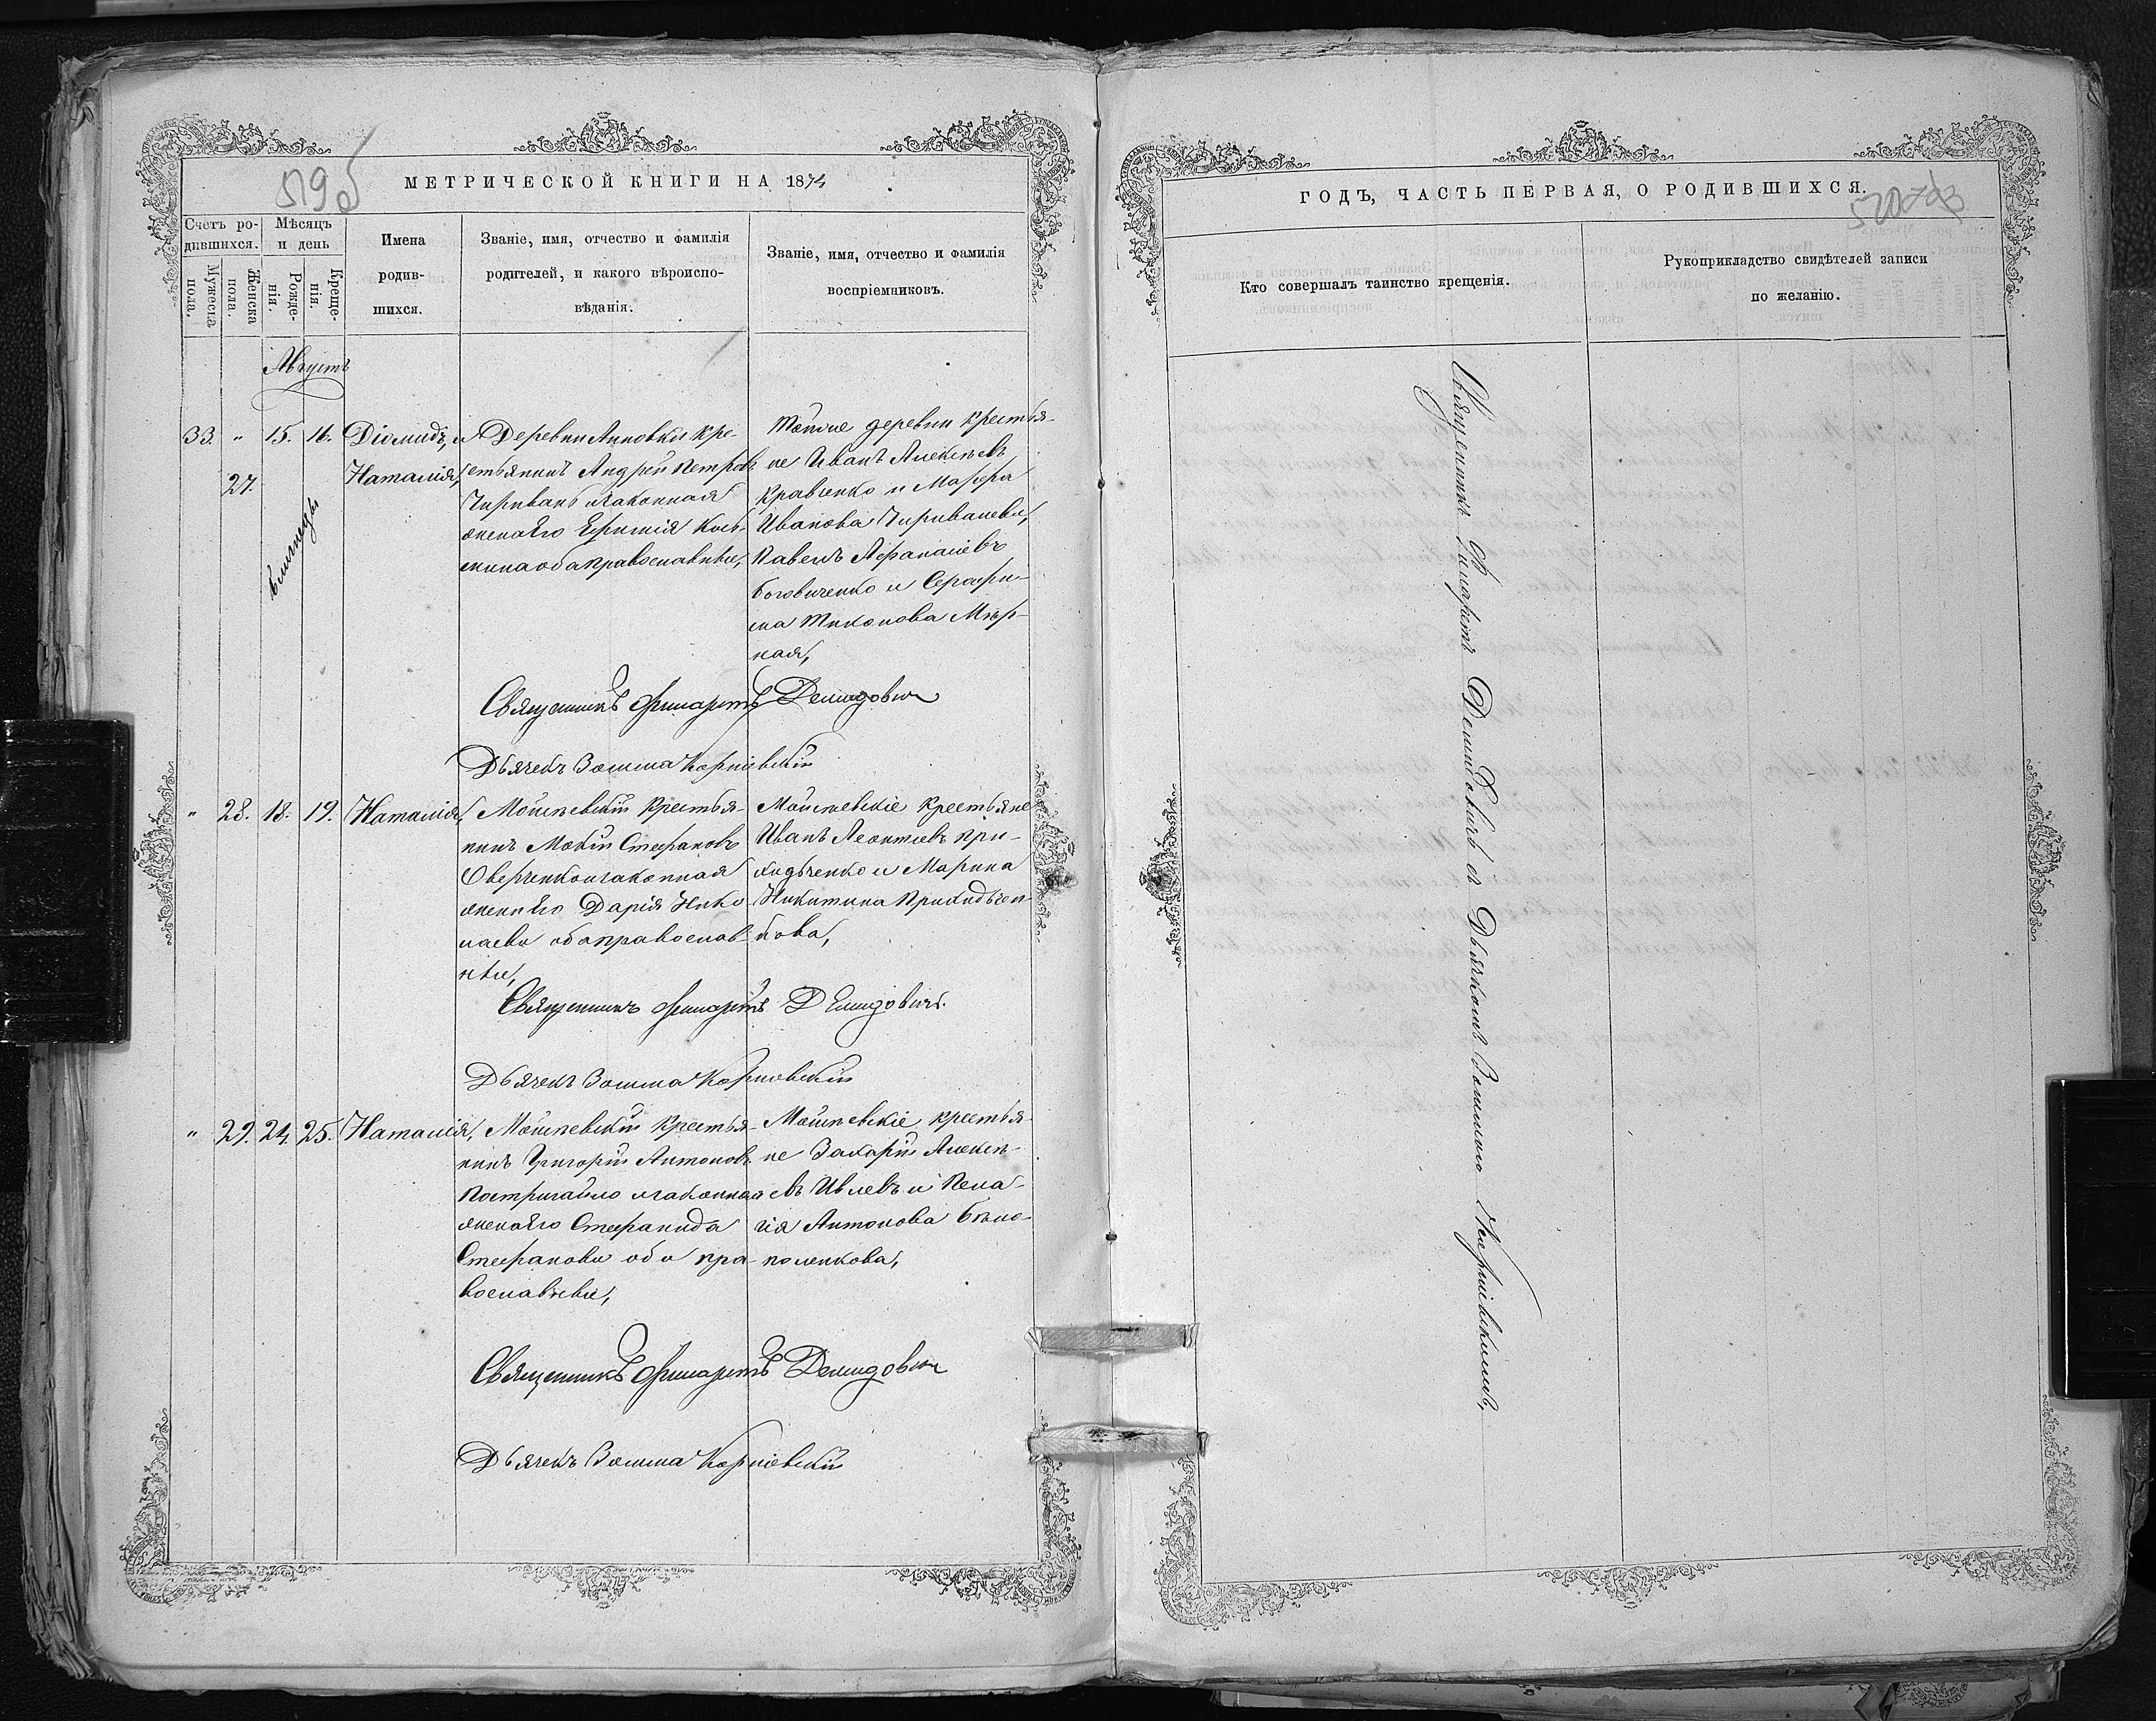 519б
МЕТРИЧЕСКОЙ КНИГИ НА 1874
Счетъ ро-
дившихся.
Мѣсяцъ
и день
Мужеска
пола.
Женска
пола.
Рожде-
нія.
Креще-
нія.
Имена
родив-
шихся.
Званіе, имя, отчество и фамилія
родителей, и какого вѣроиспо-
вѣданія.
Званіе, имя, отчество и фамилія
воспріемниковъ.
Августъ
33. " 15. 16. Діомидъ, и
27. Наталія,
близнецы
Деревни Анновки кре-
стьянинъ Андрей Петровъ
Чириванъ и законная
жена его Ефимія Кось-
мина оба православные,
Тойже деревни крестья-
не Иванъ Алексѣевъ
Кравченко и Марфа
Иванова Чириванева,
Павелъ Афанасіевъ
Боговиченко и Серафи-
ма Тихонова Мир-
ная,
Священникъ Филаретъ Демидович
Дьячекъ Зосима Корніевскій
" 28. 18. 19. Наталія,
Моисѣевскій крестья-
нинъ Мокій Стефановъ
Оверченко и законная
жена его Дарія Нико
лаева оба православ-
ные,
Моисѣевскіе крестьяне
Иванъ Леонтіевъ При-
ходьченко и Марина
Никитина Приходьчен-
кова,
Священникъ Филаретъ Демидовичъ.
Дьячекъ Зосима Корніевскій
" 29. 24. 25. Наталія,
Моисѣевскій крестья-
нинъ Григорій Антоновъ
Постригайло и законная
жена его Стефанида
Стефанова оба пра-
вославные,
Моисѣевскіе крестья-
не Захарій Алексѣ-
евъ Ивлевъ и Пела-
гія Антонова Бѣло-
поленкова,
Священникъ Филаретъ Демидович
Дьячекъ Зосима Корніевскій
ГОДЪ, ЧАСТЬ ПЕРВАЯ, О РОДИВШИХСЯ.
520
Кто совершалъ таинство крещенія.
Рукоприкладство свидѣтелей записи
по желанію.
Священникъ Филаретъ Демидовичъ съ Дьячкомъ Зосимою Корніевскимъ,